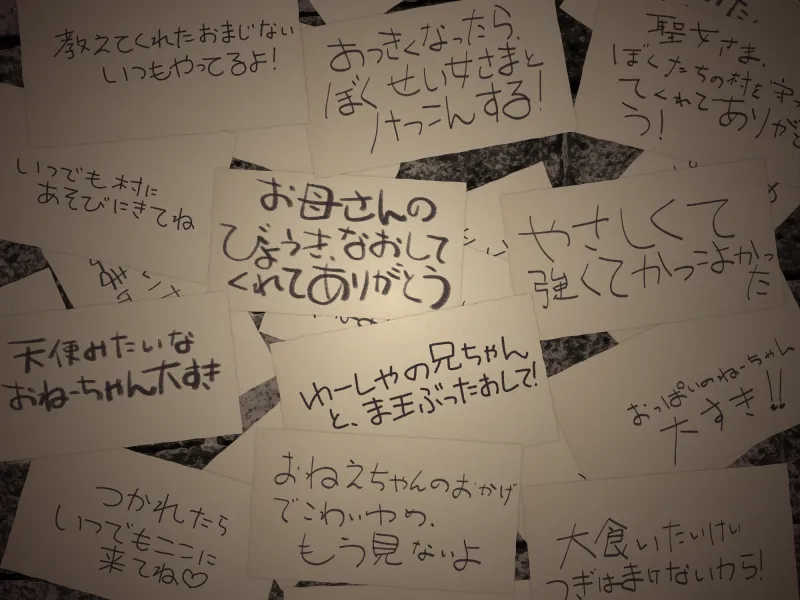 教えてくれたおまじない
いつもやってるよ！
おっきくなったら、
ぼく せい女さまと
けっこんする！
聖女さま、
ぼくたちの村を守っ
てくれてありがと
う！
いつでも村に
あそびにきてね
お母さんの
びょうき、なおして
くれてありがとう
やさしくて
強くてかっこよかっ
た
天使みたいな
おねーちゃん大すき
ゆーしゃの兄ちゃん
と、ま王ぶったおして！
おっぱいのねーちゃん
大すき！！
つかれたら
いつでもここに
来てね♡
おねえちゃんのおかげ
でこわいゆめ、
もう見ないよ
大食いたいけい
つぎはまけないから！